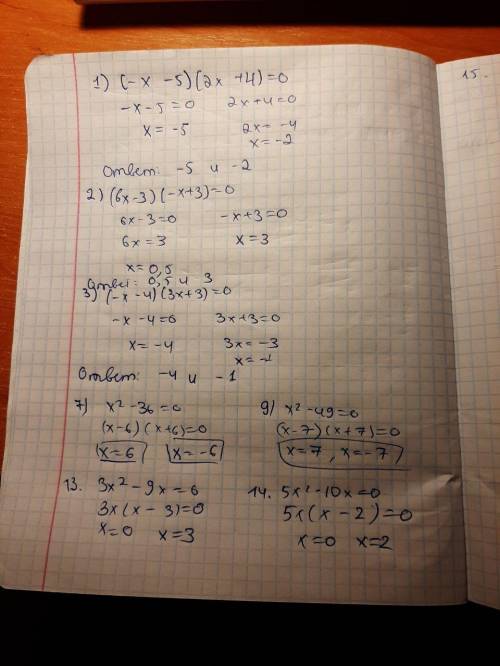 1) (-x -5)(2x +4)=0
-x-5=0 2x+4=0
x= -5 2x= -4
x= -2
Ответ: -5 и -2
2) (6x-3)(-x+3)=0
6x-3=0 -x+3=0
6x=3 x=3
x=0,5
Ответ: 0,5 и 3
3) (-x-4)(3x+3)=0
-x-4=0 3x+3=0
x= -4 3x= -3
x= -1
Ответ: -4 и -1
7) x²-36=0 9) x²-49=0
(x-6)(x+6)=0 (x-7)(x+7)=0
x=6 x=-6 x=7, x=-7
13. 3x²-9x=6 14. 5x²-10x=0
3x(x-3)=0 5x(x-2)=0
x=0 x=3 x=0 x=2
15.